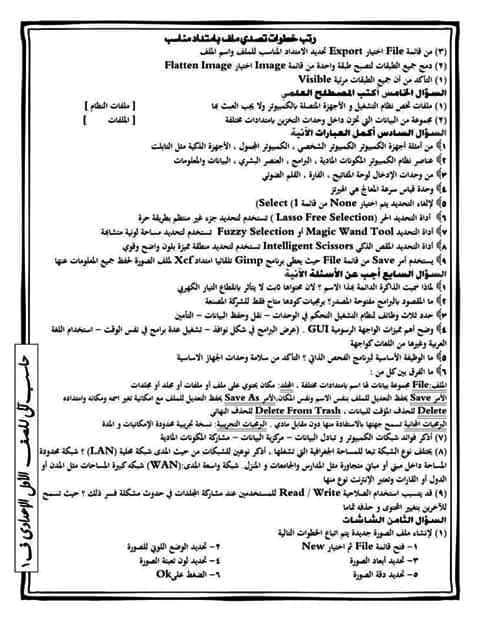 رتب خطوات تصدي ملف بامتداد مناسب
(٣) من قائمة File اختيار Export تحديد الامتداد المناسب للملف واسم الملف
(٢) دمج جميع الطبقات لتصبح طبقة واحدة من قائمة Image اختيار Flatten Image
(١) التأكد من أن جميع الطبقات مرئية Visible
السؤال الخامس أكتب المصطلح العلمي
(١) ملفات تخص نظام التشغيل و الأجهزة المتصلة بالكمبيوتر ولا يجب العبث بها [ ملفات النظام ]
(٢) مجموعة من البيانات التي تخزن داخل وحدات التخزين بامتدادات مختلفة [ الملفات ]
السؤال السادس أكمل العبارات الآتية
١) من أمثلة أجهزة الكمبيوتر الكمبيوتر الشخصي ، الكمبيوتر المحمول ، الأجهزة الذكية مثل التابلت
٢) عناصر نظام الكمبيوتر المكونات المادية ، البرامج ، العنصر البشري ، البيانات والمعلومات
٣) من وحدات الإدخال لوحة المفاتيح ، الفارة ، القلم الضوئي
٤) وحدة قياس سرعة المعالج هي الهيرتز
٥) لإلغاء التحديد يتم اختيار None من قائمة Select (1
٦) أداة التحديد الحر ( Lasso Free Selection ) تستخدم لتحديد جزء غير منتظم بطريقة حرة
٧) أداة التحديد Magic Wand Tool أو Fuzzy Selection تستخدم لتحديد مساحة لونية متشابهة
٨) أداة التحديد المقص الذكي Intelligent Scissors تستخدم لتحديد منطقة مميزة بلون واضح وقوي
٩) يستخدم أمر Save من قائمة File حيث يعطى برنامج Gimp تلقائيا امتداد Xcf لملف الصورة لحفظ جميع المعلومات عنها
السؤال السابع أجب عن الأسئلة الآتية
١) لماذا سميت الذاكرة الدائمة بهذا الاسم ؟ لان محتواها ثابت لا يتأثر بانقطاع التيار الكهربي
٢) ما المقصود بالبرامج مفتوحة المصدر؟ برمجيات كودها متاح فقط للشركة المصنعة
٣) حدد ثلاث وظائف لنظام التشغيل التحكم في الوحدات – نقل وحفظ البيانات – التأمين
٤) وضح أهم مميزات الواجهة الرسومية GUI . (عرض البرامج في شكل نوافذ – تشغيل عدة برامج في نفس الوقت – استخدام اللغة
العربية وغيرها من اللغات كواجهة
٥) ما الوظيفة الأساسية لبرنامج الفحص الذاتي ؟ التأكد من سلامة وحدات الجهاز الاساسية
٦) ما الفرق بين كل من :
الملف:File مجموعة بيانات لها اسم بامتدادات مختلفة ، المجلد: مكان يحتوي على ملف أو ملفات أو مجلد أو مجلدات
الأمر Save يحفظ التعديل للملف بنفس الاسم ونفس المكان.الأمر Save As يحفظ التعديل للملف مع امكانية تغير اسمه ومكانه وامتداده
Delete للحذف المؤقت للبيانات ، Delete From Trash للحذف النهائي
البرمجيات المجانية تسمح جهتها بالاستفادة منها دون مقابل مادي . البرمجيات التجريبية: نسخة تجريبية محدودة الإمكانيات و المدة
٧) أذكر فوائد شبكات الكمبيوتر و تبادل البيانات – مركزية البيانات – مشاركة المكونات المادية
٨) يختلف نوع الشبكة تبعا للمساحة الجغرافية التي تشغلها ، أذكر نوعين للشبكات من حيث المدى شبكة محلية (LAN) ؟ شبكة محدودة
المساحة داخل مبنى أو مباني متجاورة مثل المدارس والجامعات و المنزل. شبكة واسعة المدى:(WAN) شبكه كبيرة المساحات مثل المدن أو
الدول أو القارات وتعتبر الإنترنت نوع منها
(٩) قد يتسبب استخدام الصلاحية Read / Write للمستخدمين عند مشاركة المجلدات في حدوث مشكلة فسر ذلك ؟ حيث تسمح
للآخرين بتغيير المحتوى و حذفه تماما
السؤال الثامن الشاشات
(١) لإنشاء ملف الصورة جديدة يتم اتباع الخطوات التالية
١- فتح قائمة File ثم اختيار New ٢- تحديد الوضع اللوني للصورة
٣- تحديد أبعاد الصورة ٤- تحديد لون تعبئة الصورة
٥- تحديد دقة الصورة ٦- الضغط على Ok
حاسب آلى للصف الأول الإعدادى ف ١